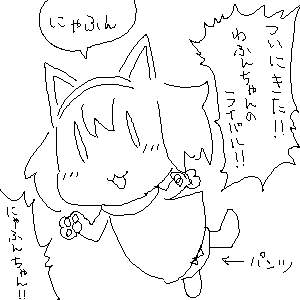 ついにきた!!
わふんちゃんの
ライバル!!
にゃふん
にゃふんちゃん!!
← パンツ